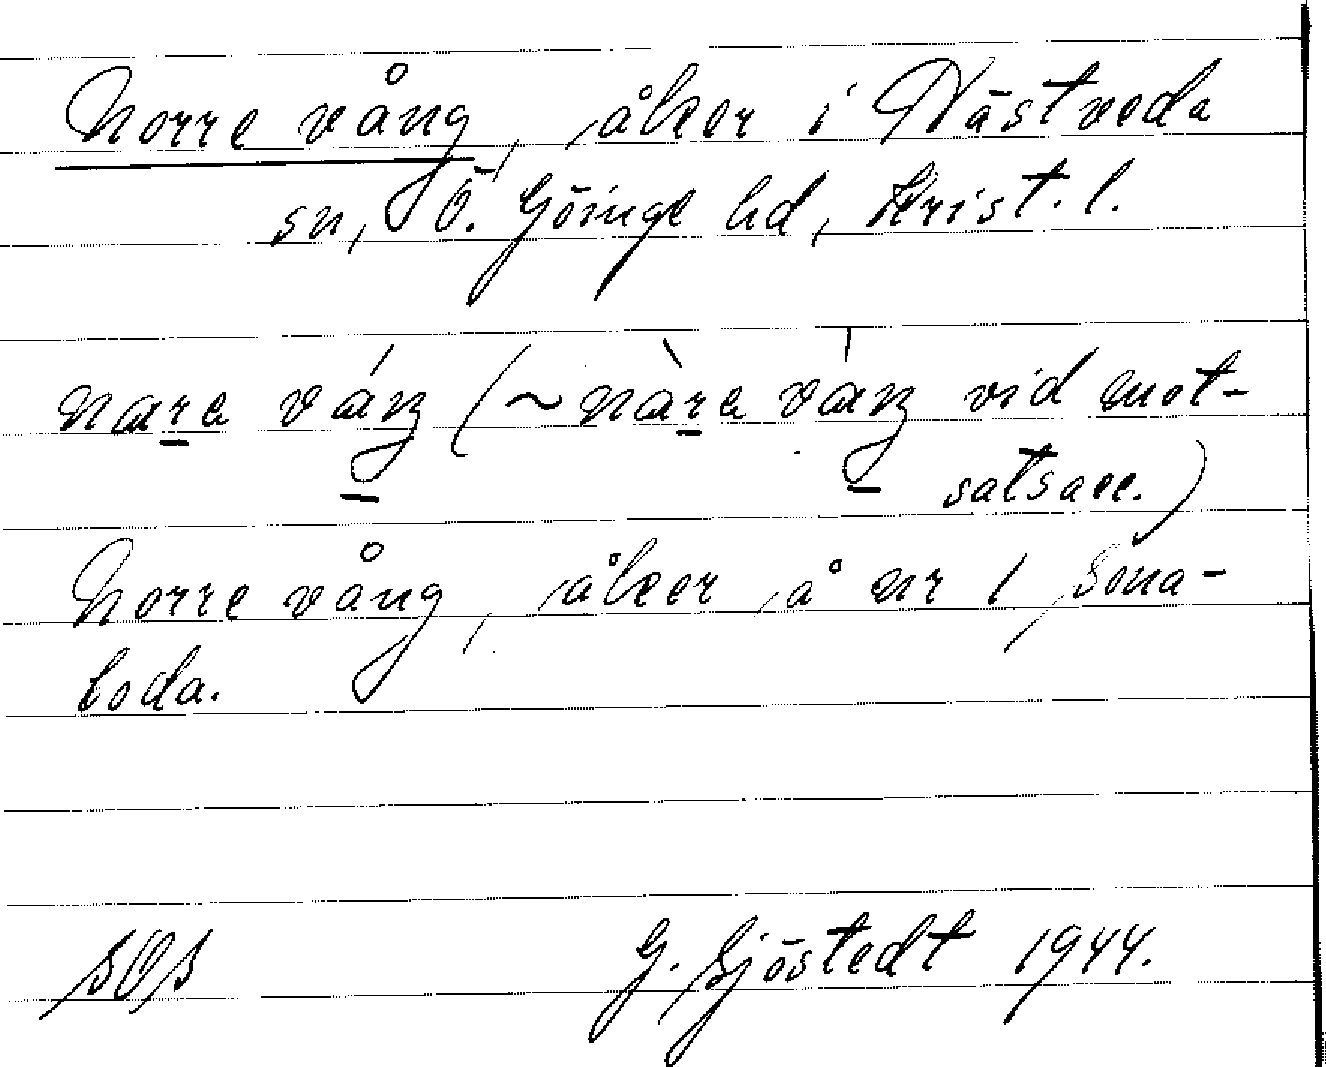 Norre vång, åker i Nästveda
sn, Ö. Göinge hd, Krist. l.
nare váŋ (~ nàre vàŋ vid mot-
satsacc.)
Norre vång, åker å nr 1 Sona-
boda.
SOS
G. Sjöstedt 1944.